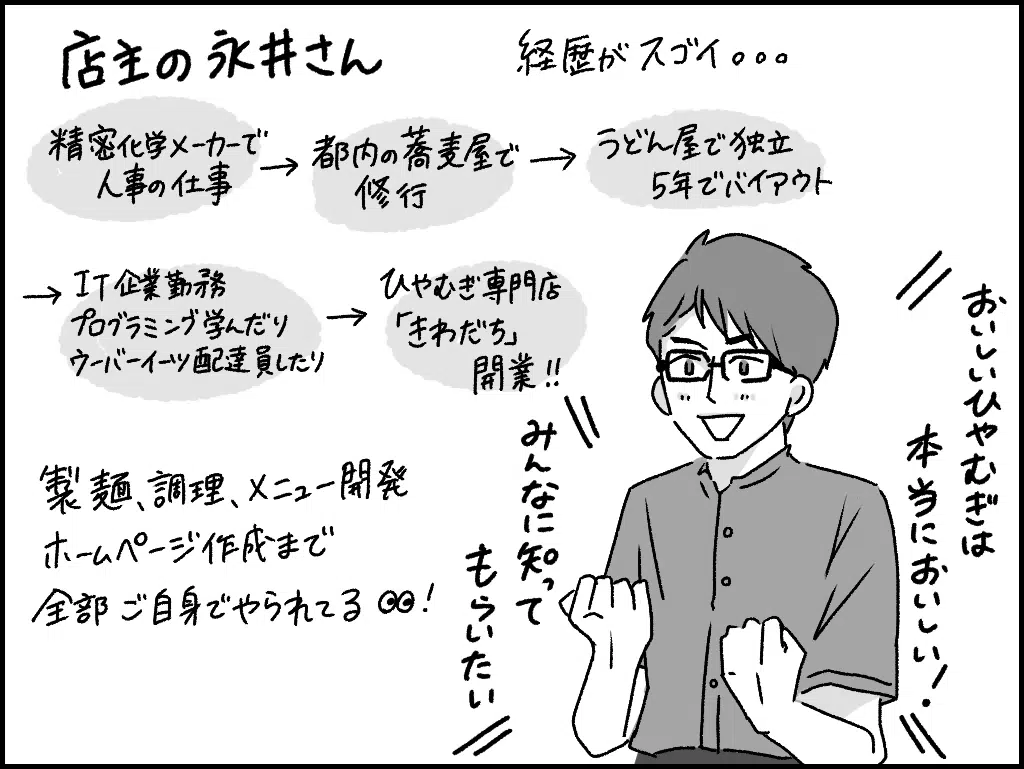 店主の永井さん
経歴がスゴイ。。。
精密化学メーカーで
人事の仕事
→
都内の蕎麦屋で
修行
→
うどん屋で独立
5年でバイアウト
→
IT企業勤務
プログラミング学んだり
ウーバーイーツ配達員したり
→
ひやむぎ専門店
「きわだち」
開業!!
製麺、調理、メニュー開発
ホームページ作成まで
全部ご自身でやられてる👀!
おいしいひやむぎは
本当においしい!
みんなに知って
もらいたい